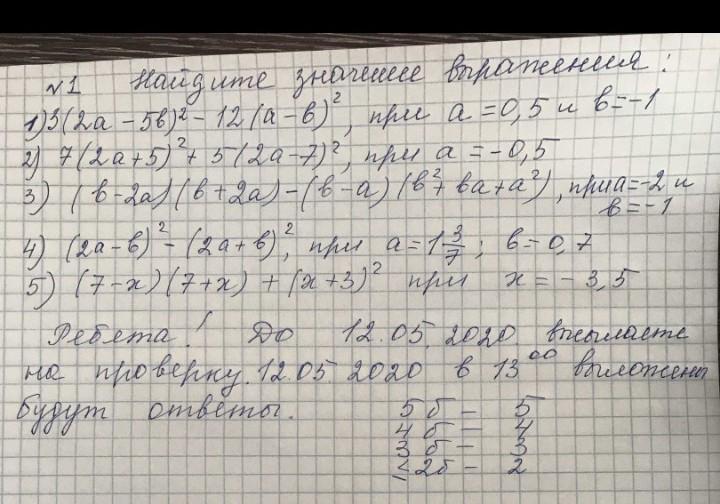 №1 Найдите значение выражения:
1) 3(2a - 5b)² - 12(a - b)², при a = 0,5 и b = -1
2) 7(2a + 5)² + 5(2a - 7)², при a = -0,5
3) (b - 2a)(b + 2a) - (b - a)(b² + ba + a²), при a = -2 и
b = -1
4) (2a - b)² - (2a + b)², при a = 1 3/7; b = 0,7
5) (7 - x)(7 + x) + (x + 3)² при x = -3,5
Ребята! До 12.05.2020 высылаете
на проверку. 12.05.2020 в 13⁰⁰ выложены
будут ответы.
5б - 5
4б - 4
3б - 3
≤2б - 2